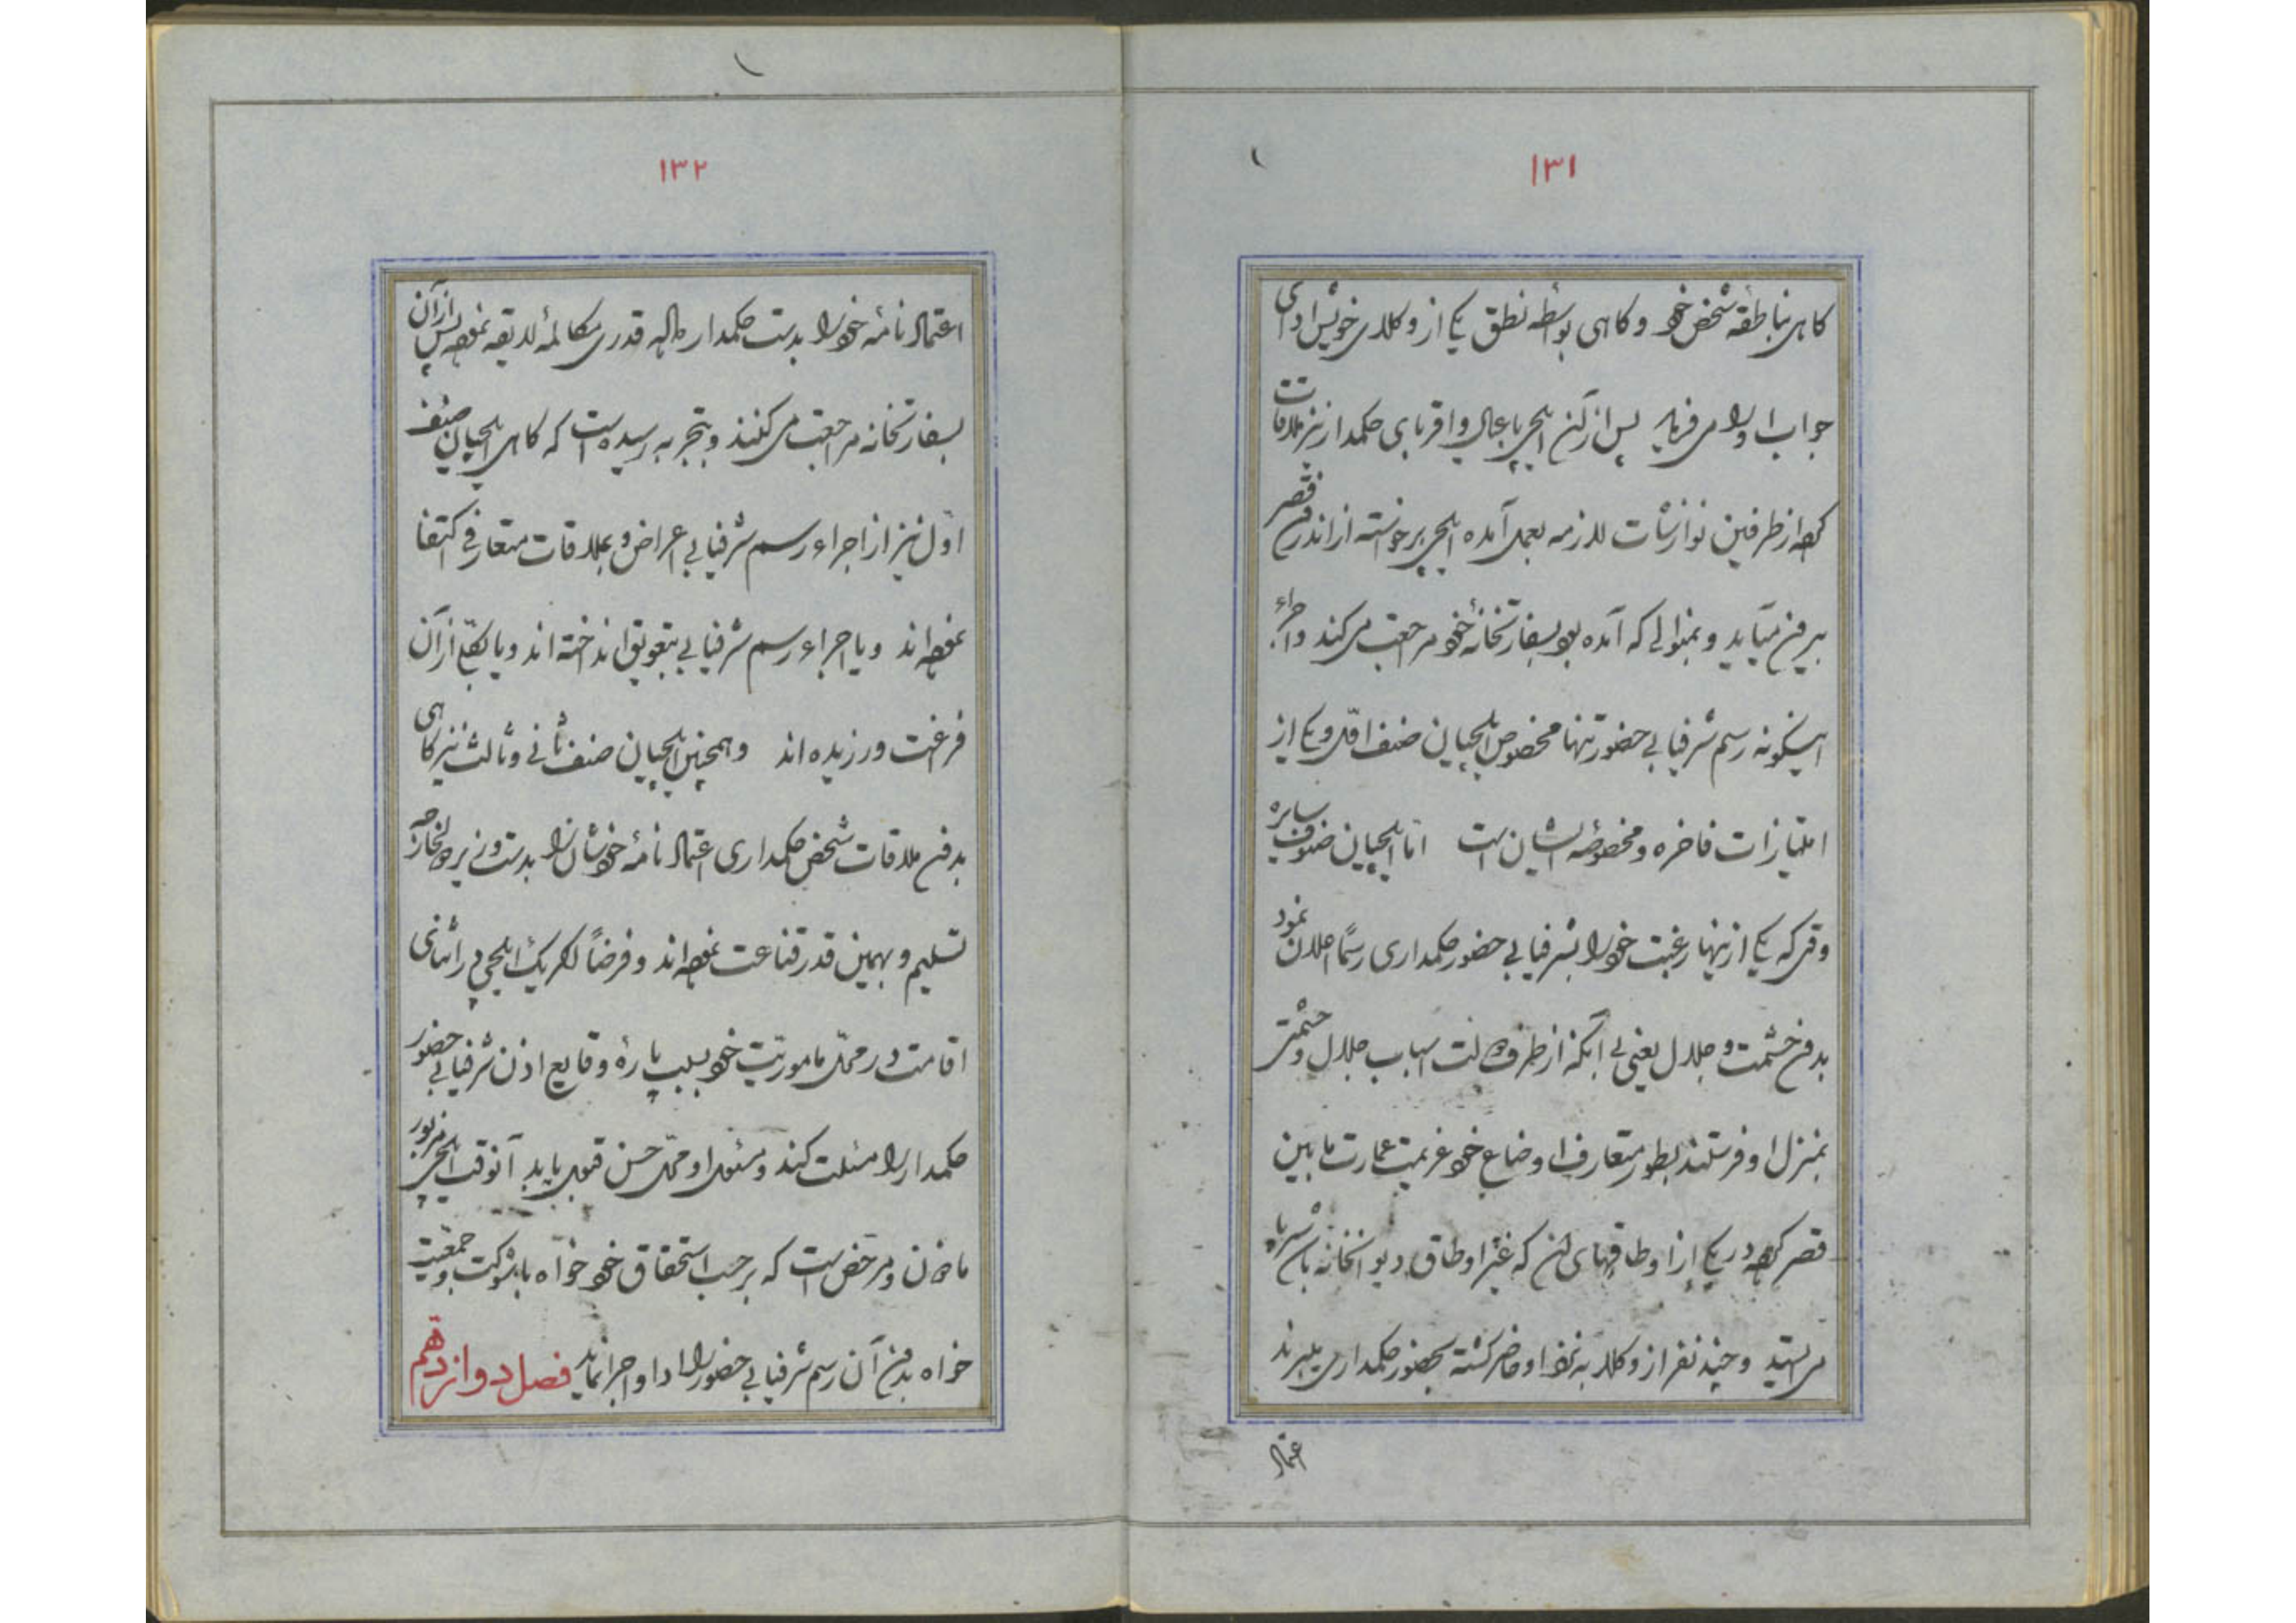 ۱۳۱
کاهی بناطقه شخص خود و کاهی بواسطه نطق یکی از وکلای خویش ادای
جواب او را می فرماید پس از آن ایلچی با عیال و اقربای حکمدار نیز ملاقات
کرده از طرفین نوازشات لازمه بعمل آمده ایلچی برخواسته از اندرون قصر
بیرون میآید و بمنوالی که آمده بود بسفارتخانهٔ خود مراجعت می کند و اجراء
اینگونه رسم شرفیابی حضور تنها مخصوص ایلچیان صنف اوّل و یکی از
امتیازات فاخره و مخصوصهٔ ایشان است امّا ایلچیان صنوف سایره
وقتی که یکی از اینها رغبت خود را بشرفیابی حضور حکمداری رسماً اعلان نمود
بدون حشمت و جلال یعنی بی آنکه از طرف دولت اسباب جلال و حشمتی
بمنزل او فرستند بطور متعارف اوضاع خود عزیمت عمارت مابین
قصر کرده در یکی از اوطاقهای آن که غیر اوطاق دیوانخانه باشد سرپا
می ایستد و چند نفر از وکلا به نزد او حاضر گشته بحضور حکمداری میبرند
اعتماد
۱۳۲
اعتماد نامهٔ خود را بدست حکمدار داده قدری مکالمهٔ لایقه نموده پس از آن
بسفارتخانه مراجعت می کنند و بتجربه رسیده است که کاهی ایلچیان صنف
اوّل نیز از اجراء رسم شرفیابی اعراض و بملاقات متعارفی اکتفا
نموده اند و یا اجراء رسم شرفیابی بتعویق انداخته اند و یا بکلّی از آن
فراغت ورزیده اند و همچنین ایلچیان صنف ثانی و ثالث نیز کاهی
بدون ملاقات شخص حکمداری اعتماد نامهٔ خودشان را بدست وزیر امور خارجه
تسلیم و بهمین قدر قناعت نموده اند و فرضاً اگر یک ایلچی در اثنای
اقامت در محلّ ماموریّت خود بسبب پارهٔ وقایع اذن شرفیابی حضور
حکمدار را مسئلت کند و مسئول او محلّ حسن قبول یابد آنوقت ایلچی مزبور
ماذون و مرخّص است که برحسب استحقاق خود خواه با شوکت و جمعیّت
خواه بدون آن رسم شرفیابی حضور را ادا و اجرا نماید فصل دوازدهم